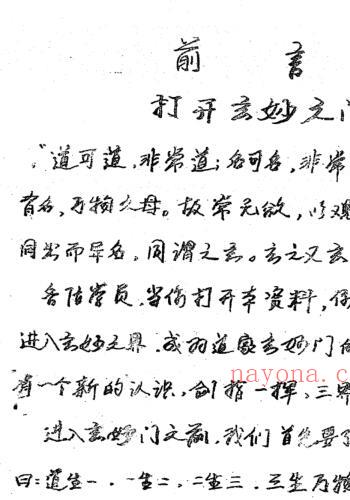 前言
打开玄妙之门
“道可道,非常道;名可名,非常
有名,万物之母。故常无欲,以观
同出而异名,同谓之玄。玄之又玄
各位学员,当你打开本资料,你
进入玄妙之界,成为道家玄妙门的
nayona.c
有一个新的认识,剑指一挥,三界
进入玄妙门之前,我们首先要了
曰:道生一,一生二,二生三,三生万物